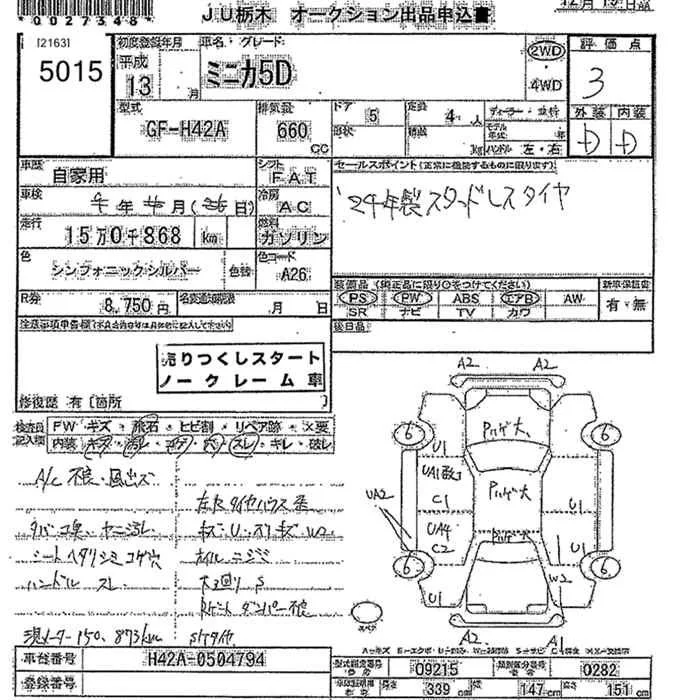 *0027348*
JU栃木 オークション出品申込書
[2163]
5015
初度登録年月
平成
13 月
車名・グレード
ミニカ5D
2WD
4WD
評価点
3
外装 内装
D D
型式
GF-H42A
排気量
660
CC
ドア 5
形状
定員 4 人
積載 kg
ディーラー・並行
モデル年式 年
ハンドル 左・右
車歴
自家用
シフト
FAT
車検
年 月 日
冷房
AC
走行
15万0千868 km
燃料
ガソリン
色
シンフォニックシルバー
色替
色コード
A26
R券
8,750円
名変期限
月 日
セールスポイント(正常に機能するものに限ります)
24年製スタッドレスタイヤ
装備品(純正品に限り○をつけてください)
PS PW ABS エアB AW
SR ナビ TV カワ
新車保証書
有・無
後日品
売りつくしスタート
ノークレーム車
修復歴 有〔箇所 〕
検査員記入欄
FW キズ・飛石・ヒビ割・リペア跡・X要
内装 キズ・汚レ・コゲ・穴・スレ・キレ・破レ
A/C 不良・風出ズ
左Rタイヤハウス
タバコ臭、ヤニ汚レ
キズU・スリキズW2
シートヘタリシミコゲ穴
オイルニジミ
ハンドル スレ
下廻りS
Rゲートダンパー不良
現メーター150,873km
Sパナ
A2 A2
6 6
U1
ハゲ大
UA1
C1
UA2
ハゲ大
U1
UA4
C2
ハゲ大
U1
6 6
U1
W2
A2 A1
スペア
A=キズ E=エクボ
車台番号
H42A-0504794
登録番号
型式指定番号
09215
類別区分番号
0282
長さ 339 cm
幅 147 cm
高さ 151 cm